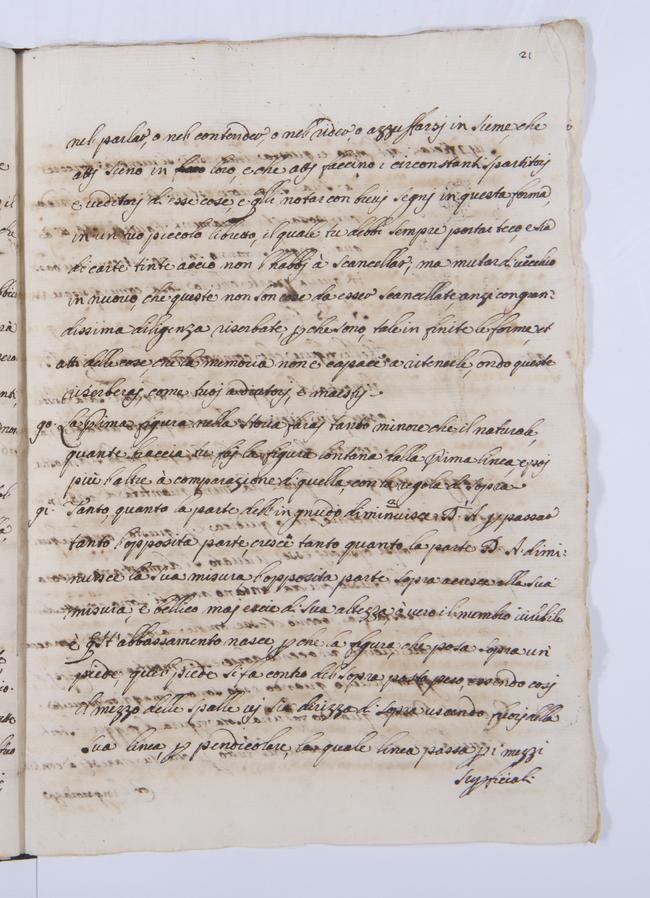 21
nel parlar, o nel contender, o nel rider o azzuffarsj in sieme, che
attj sieno in loro, e che attj faccino i circonstanti spartitorj
e veditorj di esse cose, e quelli notar con brevj segnj in questa forma,
in un tuo piccolo libretto, il quale tu debbi sempre portar teco, e sia
di carte tinte acciò non l'habbj à scancellar, ma mutar di vecchio
in nuovo, che queste non son cose da esser scancellate anzi con gran-
dissima diligenza riserbate, perche sono tale in finite le forme, et
atti delle cose che la memoria non è capace a ritenerle, onde queste
riserberaj, come tuoj adiutorj e maestrj.
90. La prima figura nella storia faraj tanto minore che il naturale,
quante braccia tu faj la figura lontana dalla prima linea e poj
più l'altre à comparazione di quella, con la regola di sopra.
91. Tanto, quanto la parte dell'ignudo diminuisce D. A. per passar
tanto l'opposita parte, cresce tanto quanto la parte D. A. dimi:
nuisce la sua misura l'opposita parte sopra acresce alla sua
misura, e bellico maj escie di sua altezza, o vero il membro virile
è questo abbassamento nasce perche la figura che posa sopra un
piede quel piede si fa centro del sopra posto peso, essendo così
il mezzo delle spalle vj sia dirizza di sopra uscendo fuorj della
sua linea, perpendicolare, la quale linea passa per i mezzi
superficiali